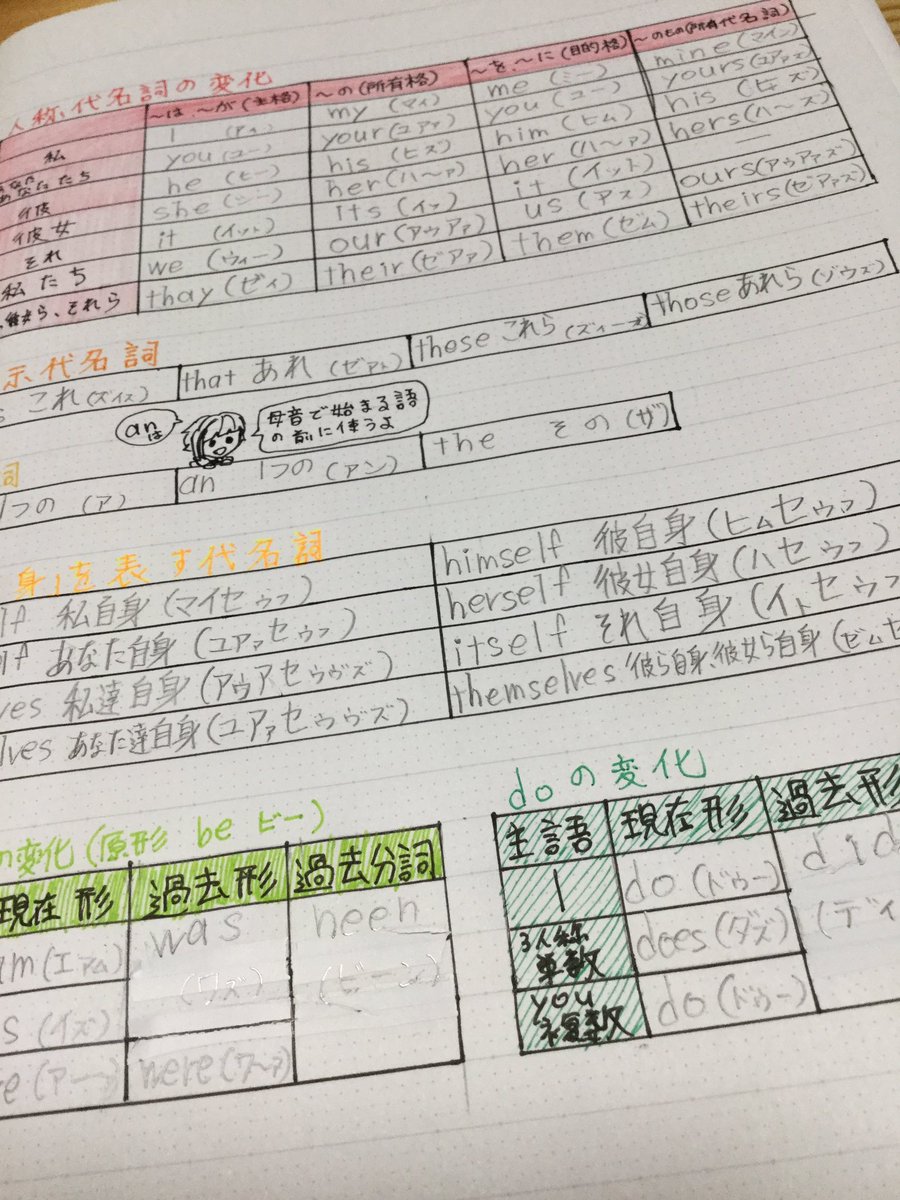 人称代名詞の変化
～は、～が(主格) ～の(所有格) ～を、～に(目的格) ～のもの(所有代名詞)
私 I (アイ) my (マイ) me (ミー) mine (マイン)
あなた あなたたち you (ユー) your (ユアァ) you (ユー) yours (ユアァズ)
彼 he (ヒー) his (ヒズ) him (ヒム) his (ヒズ)
彼女 she (シー) her (ハ～ァ) her (ハ～ァ) hers (ハ～ズ)
それ it (イット) its (イッ) it (イット) ―
私たち we (ウィー) our (アウアァ) us (アス) ours (アウアァズ)
彼女ら、それら thay (ゼィ) their (ゼアァ) them (ゼム) theirs (ゼアァズ)
示代名詞
s これ (ズイス) that あれ (ゼアト) these これら (ズィーズ) those あれら (ゾウズ)
anは
母音で始まる語
の前に使うよ
詞
1つの (ア) an 1つの (アン) the その (ザ)
身」を表す代名詞
lf 私自身 (マイセゥフ) himself 彼自身 (ヒムセゥフ)
lf あなた自身 (ユアァセゥフ) herself 彼女自身 (ハセゥフ)
ves 私達自身 (アゥアセゥヴズ) itself それ自身 (イトセゥフ)
lves あなた達自身 (ユアァセゥヴズ) themselves 彼ら自身、彼女ら自身 (ゼムセ
の変化 (原形 be ビー)
現在形 過去形 過去分詞
m (エアム) was (ワズ) neen (ビーン)
s (イズ)
e (アー) were (ワ～ァ)
doの変化
主語 現在形 過去形
I do (ドゥー) did (ディ
3人称単数 does (ダズ)
you 複数 do (ドゥー)